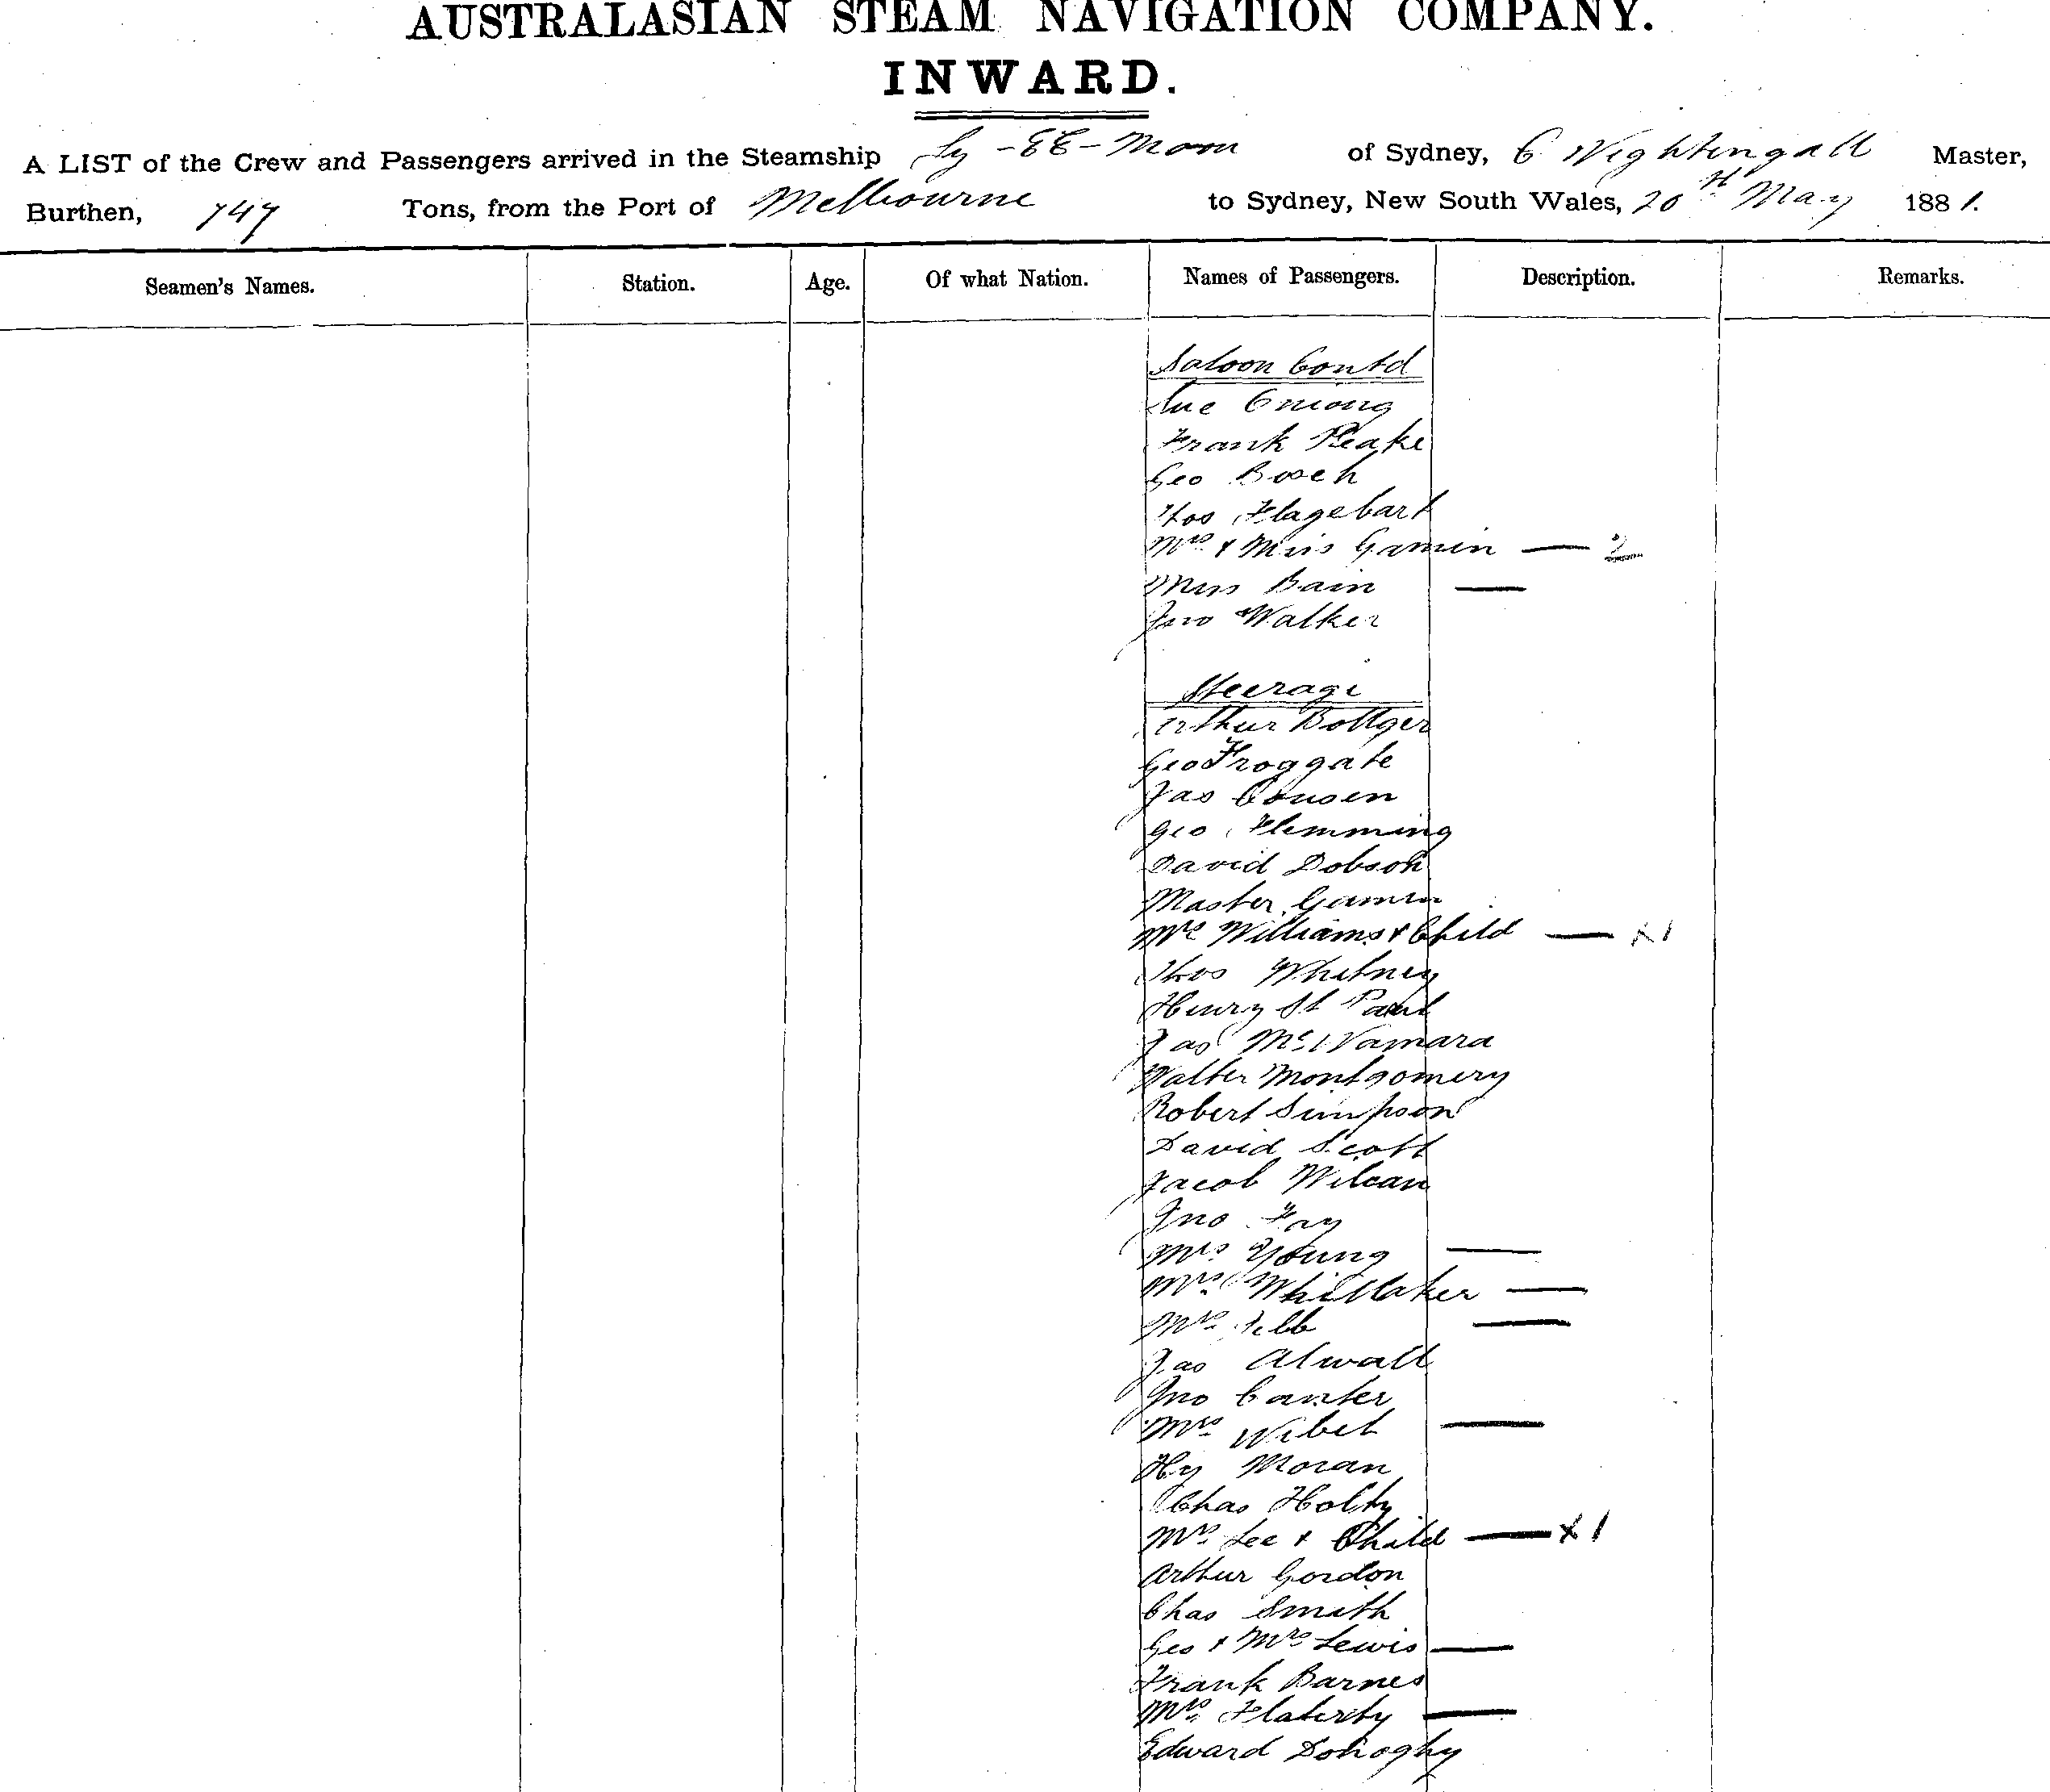 AUSTRALASIAN STEAM NAVIGATION COMPANY.
INWARD.
A LIST of the Crew and Passengers arrived in the Steamship Ly-EE-Moon of Sydney, E Nightingall Master,
Burthen, 747 Tons, from the Port of Melbourne to Sydney, New South Wales, 20th May 1881.
Seamen's Names. Station. Age. Of what Nation. Names of Passengers. Description. Remarks.
Saloon Contd
Frank Peake
Geo Bosch
Thos
Mrs & Miss Gamin — 2
Miss Bain —
Jno Walker
Steerage
Arthur Bottger
Geo Froggate
Jas Cousen
Geo Flemming
David Dobson
Master Gamin
Mrs Williams & Child — x1
Thos Whitney
Henry St Paul
Jas McNamara
Walter Montgomery
Robert Simpson
David Scott
Jacob
Jno Fay
Mrs Young —
Mrs Whittaker —
Mrs —
Jas Atwall
Jno Canter
Mrs —
Hy Moran
Chas Holty
Mrs Lee & Child — x1
Arthur Gordon
Chas Smith
Geo & Mrs Lewis —
Frank Barnes
Mrs Flaherty —
Edward Donoghy